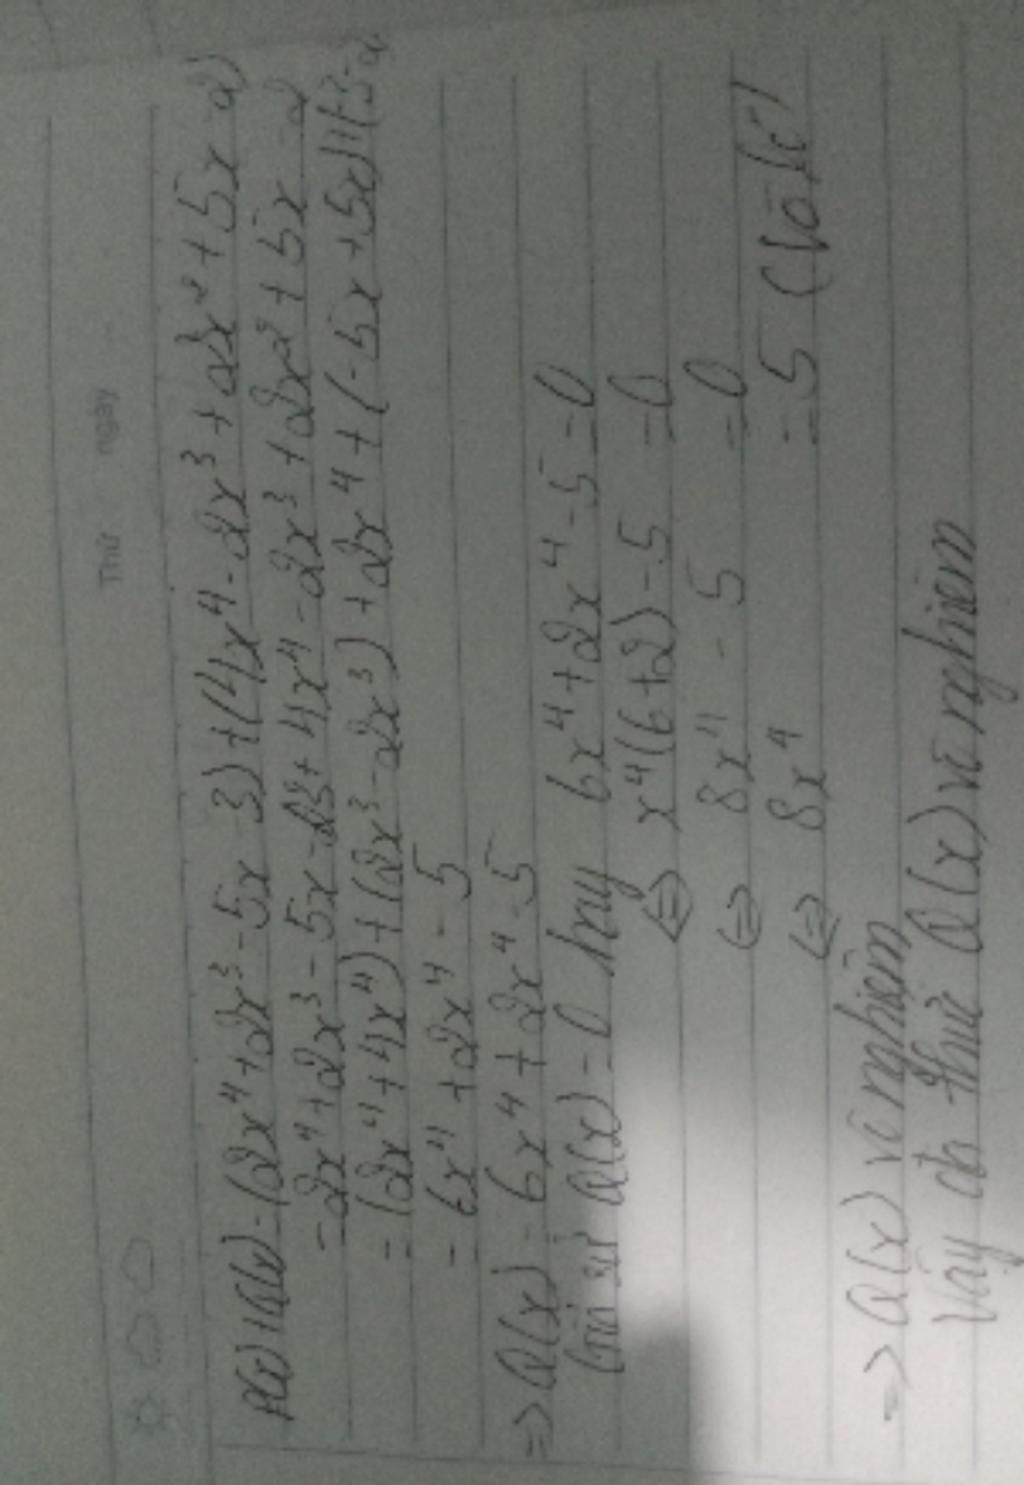 Thứ ngày
P(x)+Q(x)=(2x⁴+2x³-5x-3)+(4x⁴-2x³+2x²+5x-2)
=2x⁴+2x³-5x-3+4x⁴-2x³+2x²+5x-2
=(2x⁴+4x⁴)+(2x³-2x³)+2x⁴+(-5x+5x)+(-3-2
=6x⁴+2x⁴-5
=> Q(x)=6x⁴+2x⁴-5
Giả sử Q(x)=0 hay 6x⁴+2x⁴-5=0
<=> x⁴(6+2)-5 =0
<=> 8x⁴-5 =0
<=> 8x⁴ =5 (Vô lí)
=> Q(x) vô nghiệm
Vậy đa thức Q(x) vô nghiệm